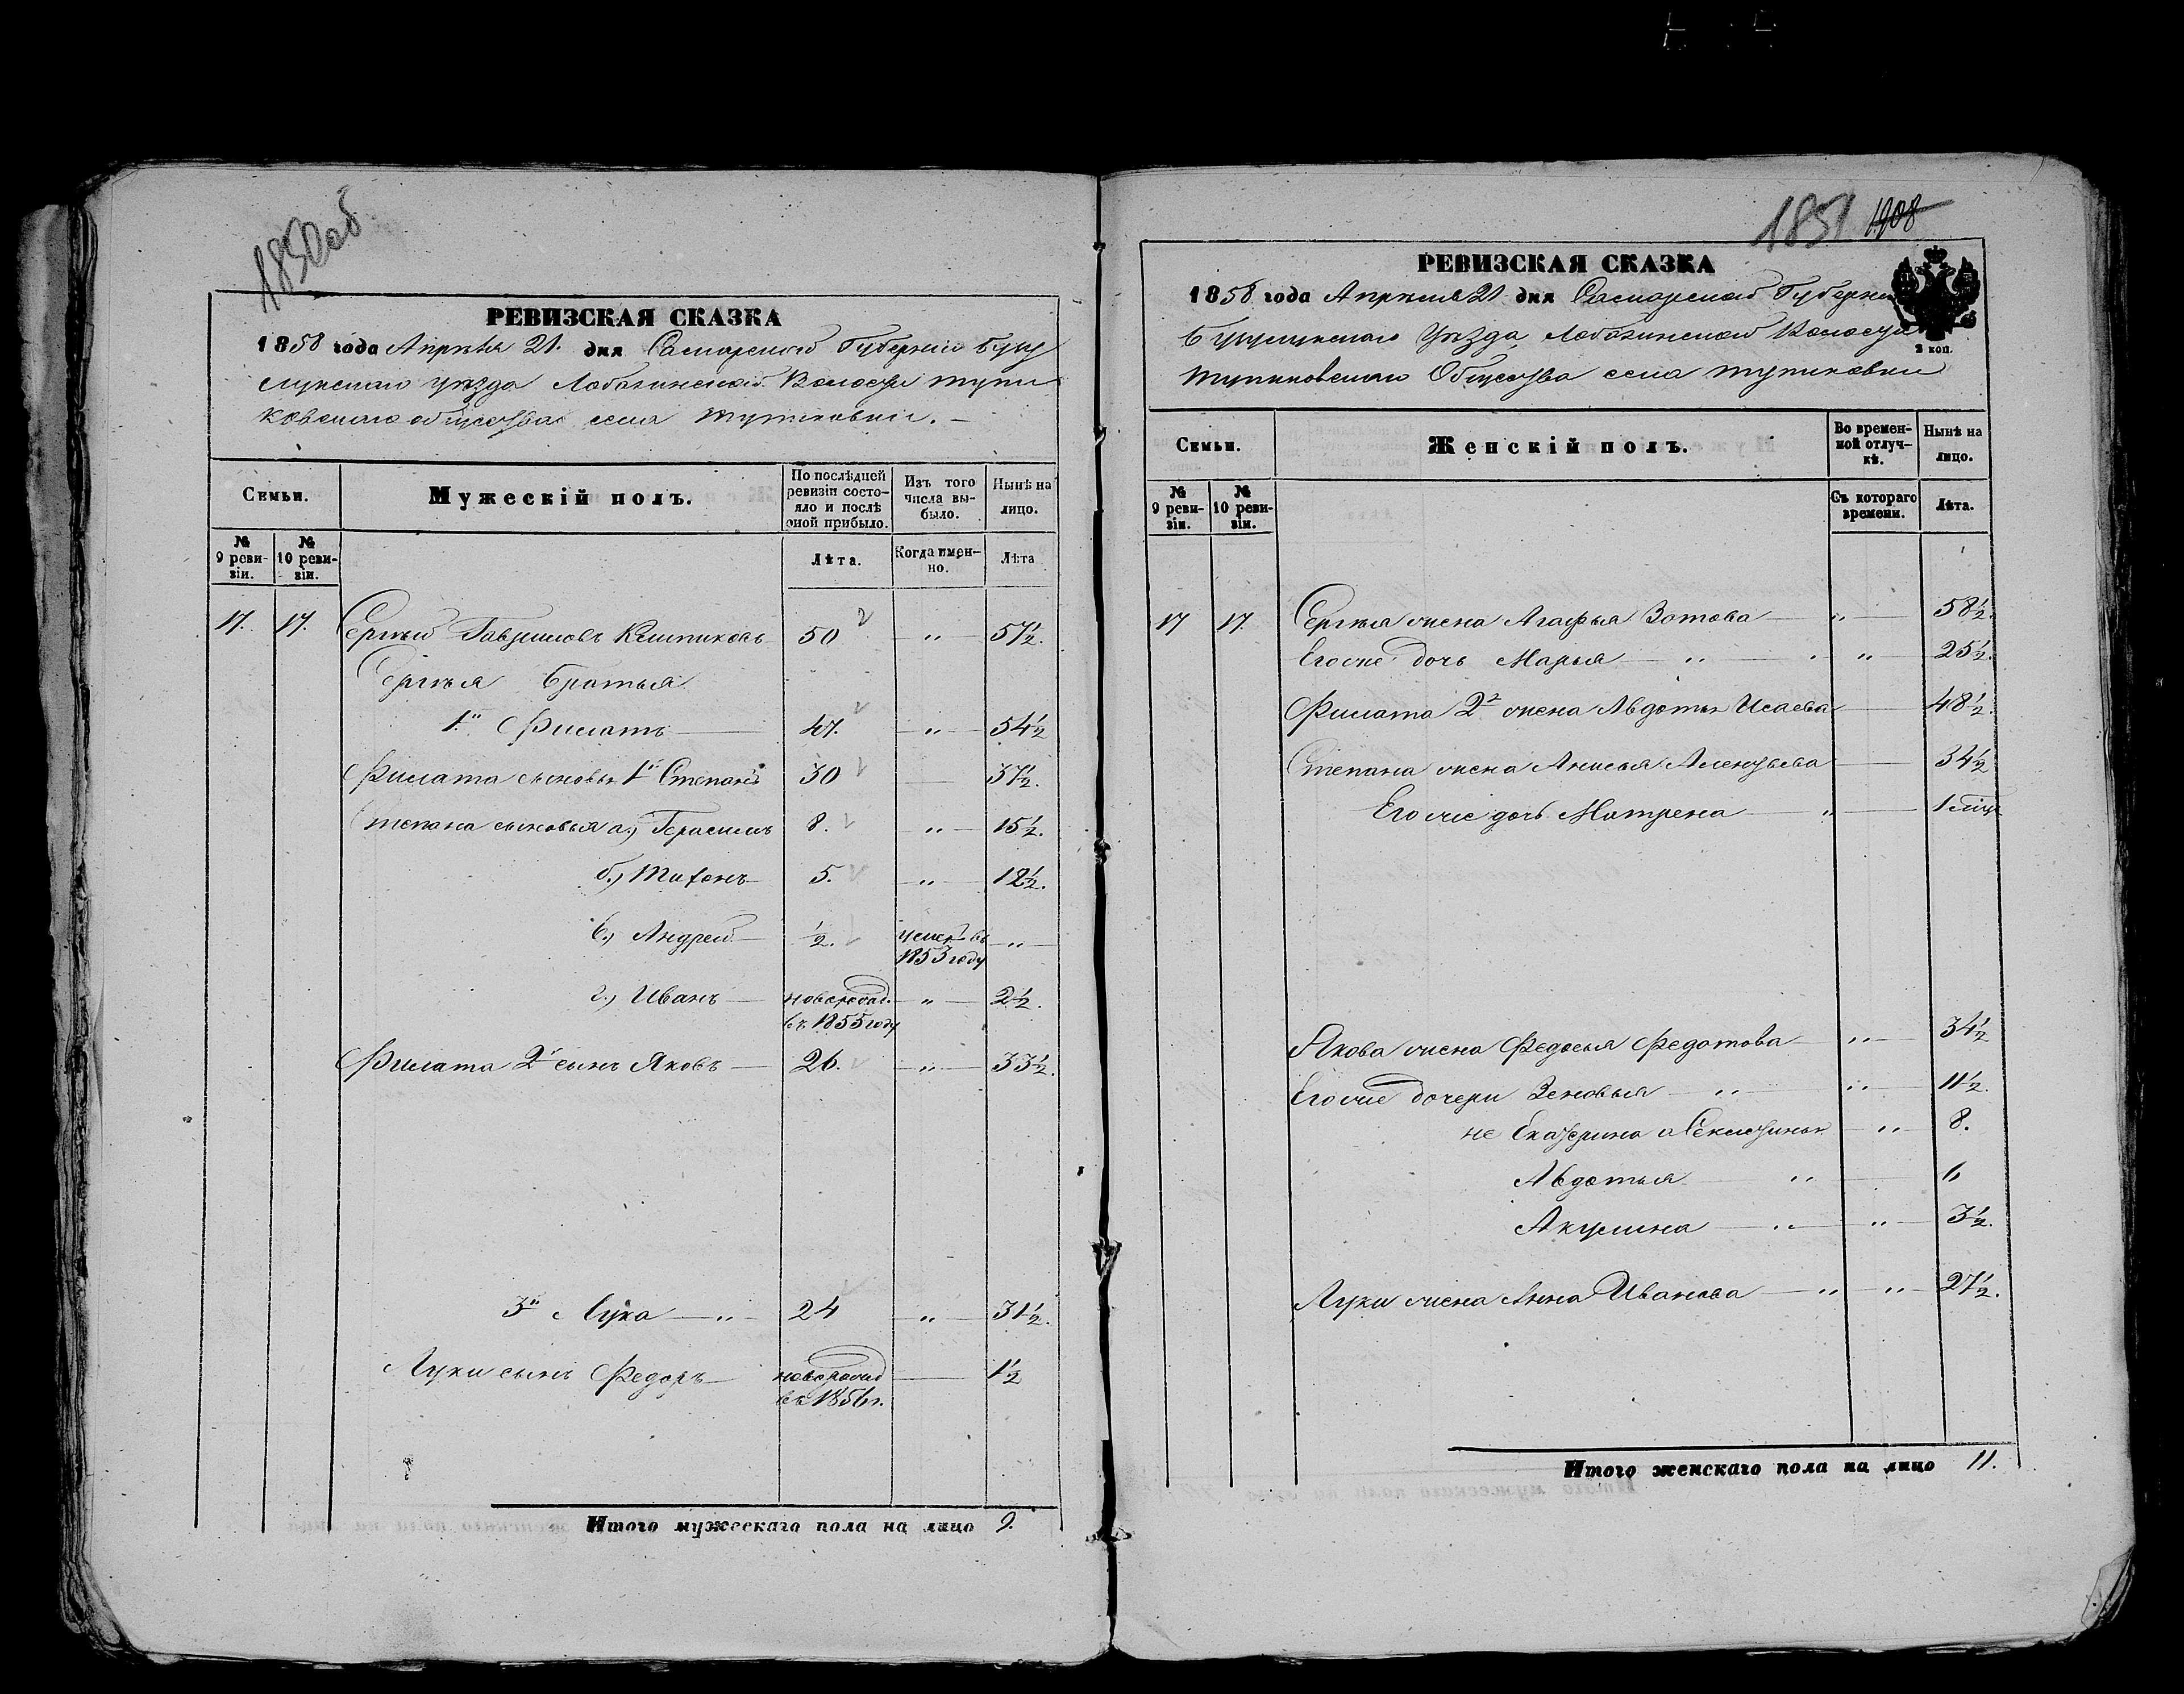 1850об
РЕВИЗСКАЯ СКАЗКА
1858 года Апрѣля 21. дня Самарской Губерніи Бугу
лукскаго уѣзда Лобазинской Волости тупи
ковскаго общества села тупиковки. —
Семьи.
Мужескій полъ.
По послѣдней ревизіи состояло и послѣ оной прибыло.
Изъ того числа выбыло.
Нынѣ на лицо.
№ 9 ревизіи.
№ 10 ревизіи.
Лѣта.
Когда именно.
Лѣта
17. 17. Сергѣй Гавриловъ 50 — " — 57½.
Сергѣя братья
1й Филатъ — 47. — " — 54½
Филата сыновья 1й Степанъ 30 — 37½.
Степана сыновья а.) Герасимъ 8. — " — 15½.
б.) Тихонъ — 5. — " — 12½.
в.) Андрей — ½. умеръ въ 1853 году — " —
г.) Иванъ — новорожд. въ 1855 году — " — 2½.
Филата 2й сынъ Яковъ — 26. — " — 33½.
3й Лука — " — 24 — " — 31½.
Луки сынъ Федоръ — новорожд въ 1856 г. — 1½
Итого мужескаго пола на лицо 9.
1851 1908
РЕВИЗСКАЯ СКАЗКА
1858 года Апрѣля 21 дня Самарской Губерніи
Бугулукскаго Уѣзда Лобазинской Волости
2 коп.
тупиковскаго Общества села тупиковки
Семьи.
Женскій полъ.
Во временной отлучкѣ.
Нынѣ на лицо.
№ 9 ревизіи.
№ 10 ревизіи.
Съ котораго времени.
Лѣта.
17 17. Сергѣя жена Агафья Зотова — " — 58½.
Его же дочь Марья — " — " — 25½.
Филата 2я жена Авдотья Исаева — 48½.
Степана жена Анисья Алентьева — 34½
Его же дочь Матрена — " — 1 мѣсц
Якова жена Федосья Федотова — " — 34½
Его же дочери Зеновья — " — " — 11½.
не Екатерина а Секлетинья — " — 8.
Авдотья — " — 6
Акулина — " — " — 3½.
Луки жена Анна Иванова — " — " — 27½.
Итого женскаго пола на лицо 11.